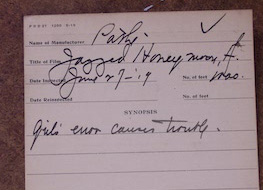 Name of Manufacturer Pathé
Title of Film Jazzed Honeymoon, A.
Date Inspected June 27-'19 No. of feet 1000.
Date Reinspected No. of feet
SYNOPSIS
Girl's error causes trouble.